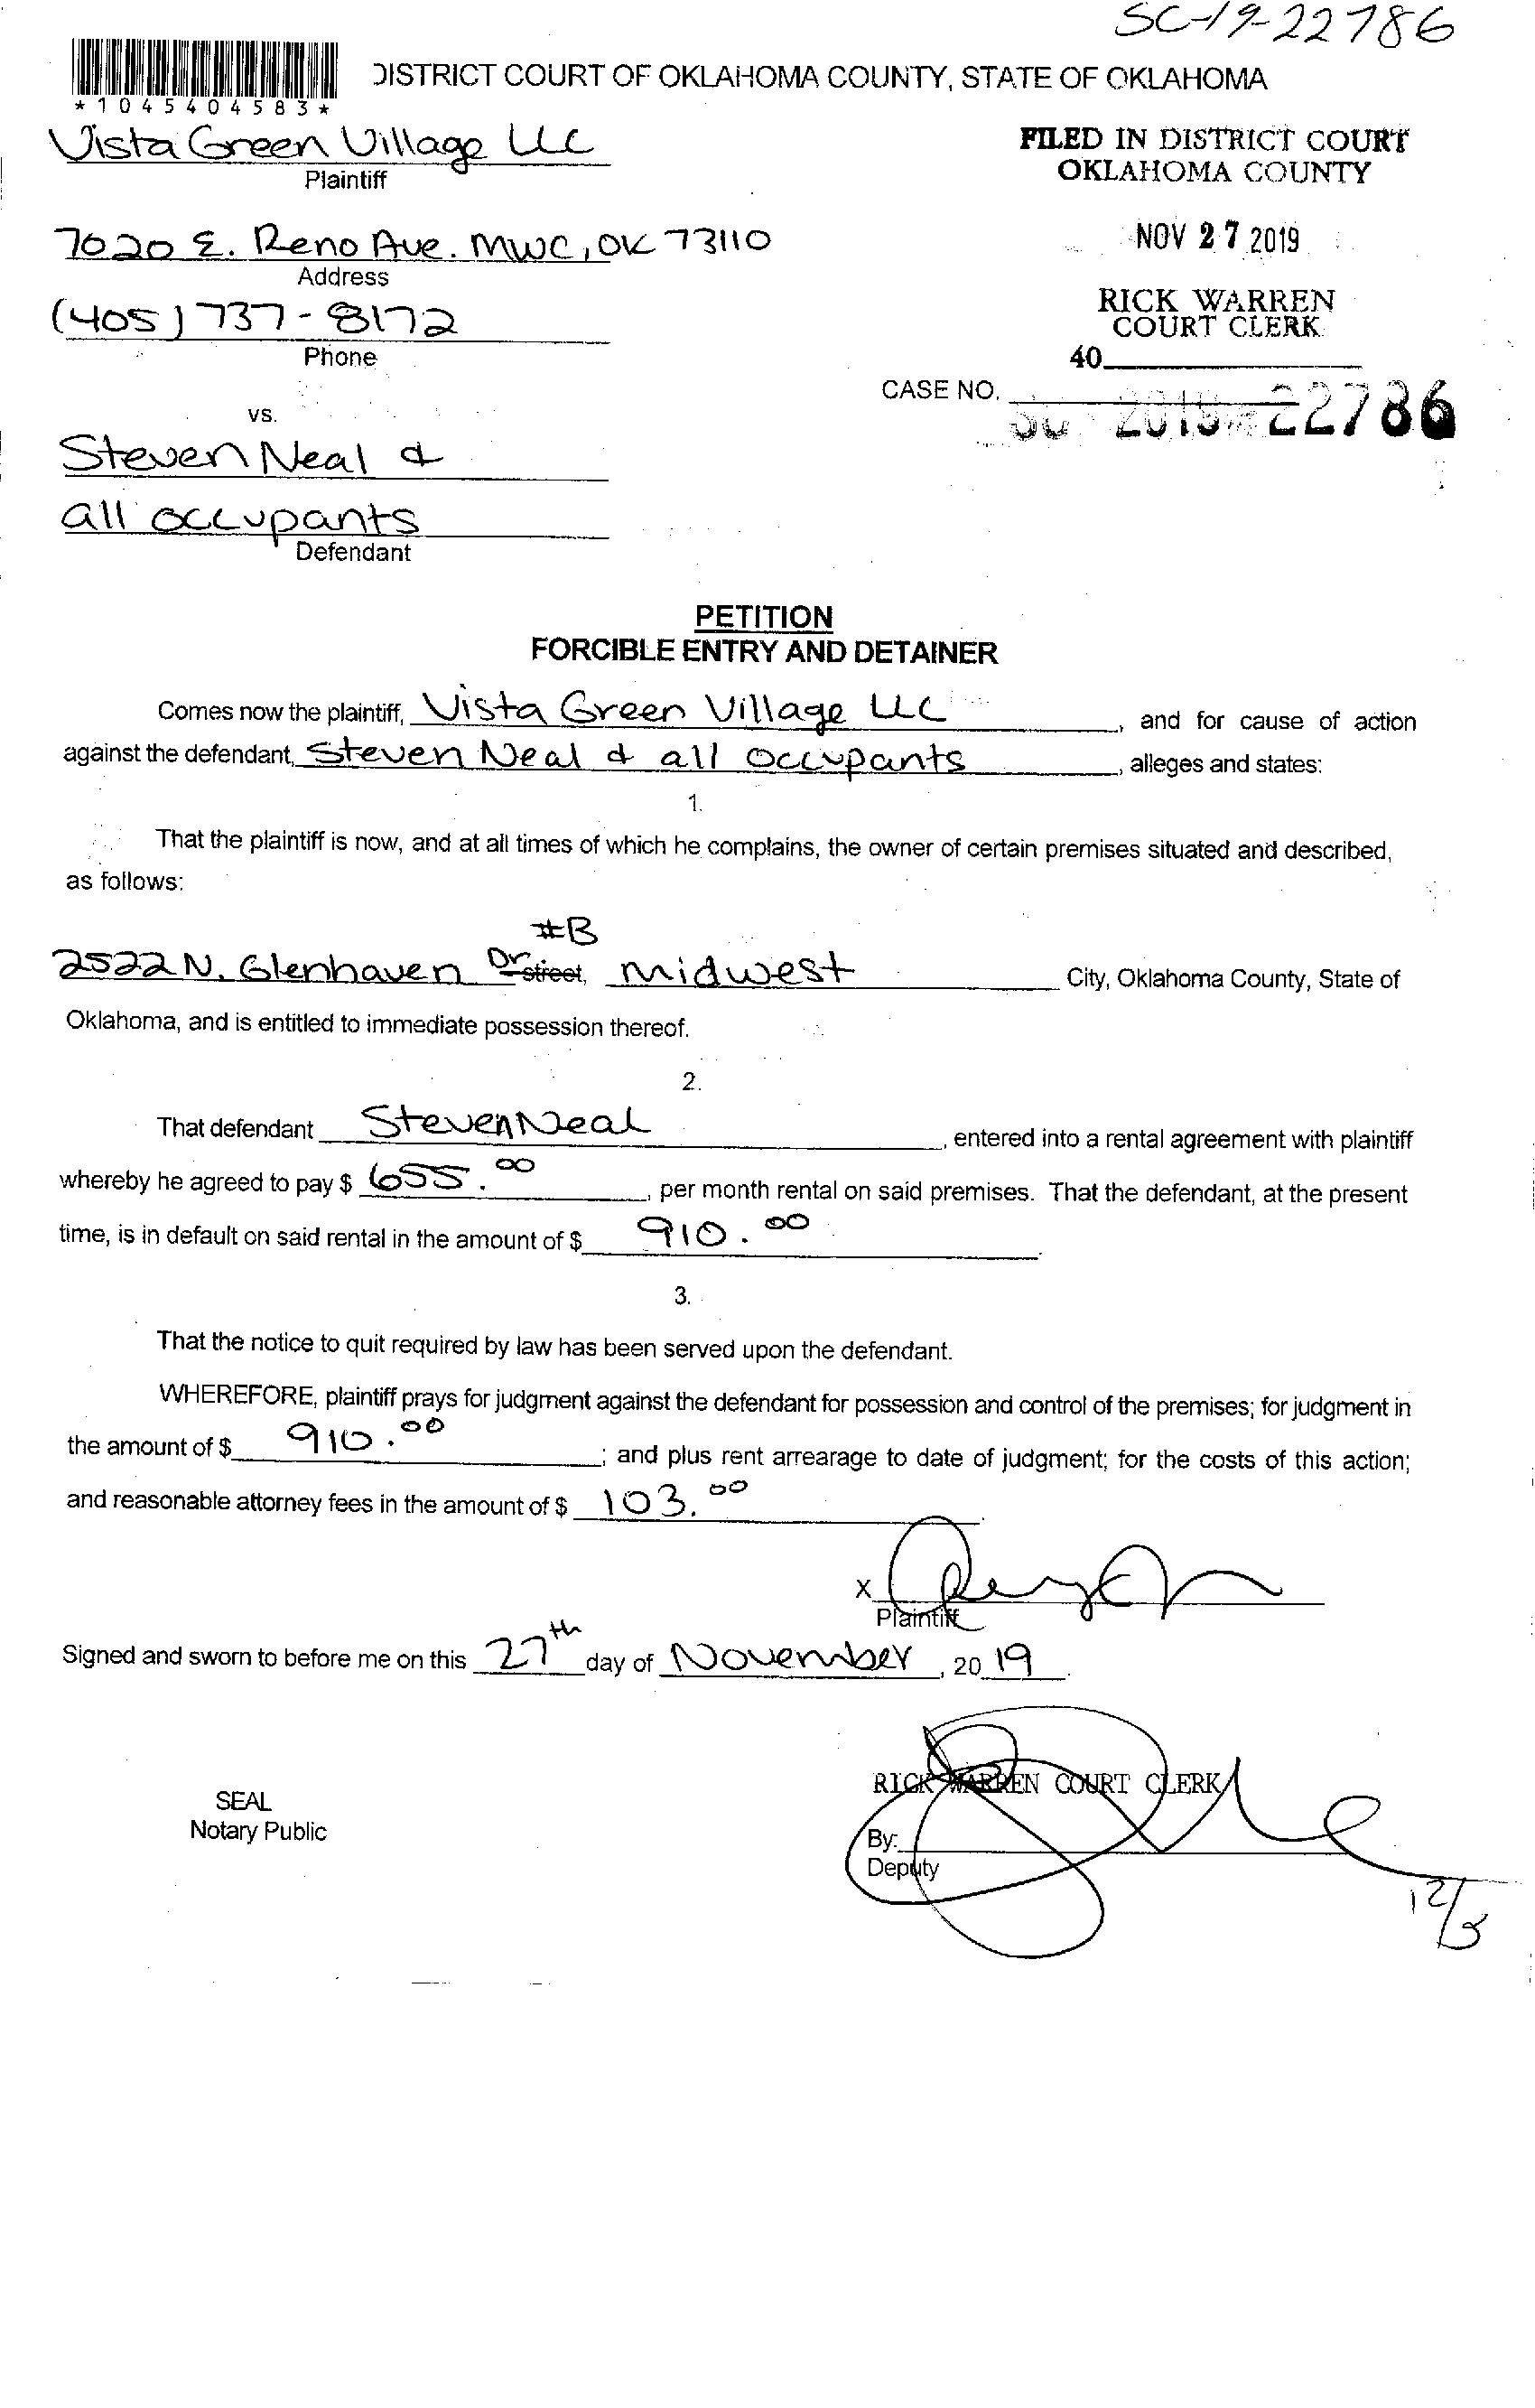 SC-19-22786
*1045404583*
DISTRICT COURT OF OKLAHOMA COUNTY, STATE OF OKLAHOMA
Vista Green Village LLC
Plaintiff
FILED IN DISTRICT COURT
OKLAHOMA COUNTY
7020 E. Reno Ave. MWC, OK 73110
Address
NOV 27 2019
(405) 737-8172
Phone
RICK WARREN
COURT CLERK
40
CASE NO.
SC 2019-22786
vs.
Steven Neal &
all occupants
Defendant
PETITION
FORCIBLE ENTRY AND DETAINER
Comes now the plaintiff, Vista Green Village LLC, and for cause of action
against the defendant, Steven Neal & all occupants, alleges and states:
1.
That the plaintiff is now, and at all times of which he complains, the owner of certain premises situated and described,
as follows:
#B
2522 N. Glenhaven Dr street, Midwest City, Oklahoma County, State of
Oklahoma, and is entitled to immediate possession thereof.
2.
That defendant Steven Neal, entered into a rental agreement with plaintiff
whereby he agreed to pay $ 655.00, per month rental on said premises. That the defendant, at the present
time, is in default on said rental in the amount of $ 910.00.
3.
That the notice to quit required by law has been served upon the defendant.
WHEREFORE, plaintiff prays for judgment against the defendant for possession and control of the premises; for judgment in
the amount of $ 910.00; and plus rent arrearage to date of judgment; for the costs of this action;
and reasonable attorney fees in the amount of $ 103.00.
X
Plaintiff
Signed and sworn to before me on this 27th day of November, 2019.
RICK WARREN COURT CLERK
SEAL
Notary Public
By:
Deputy
12/3